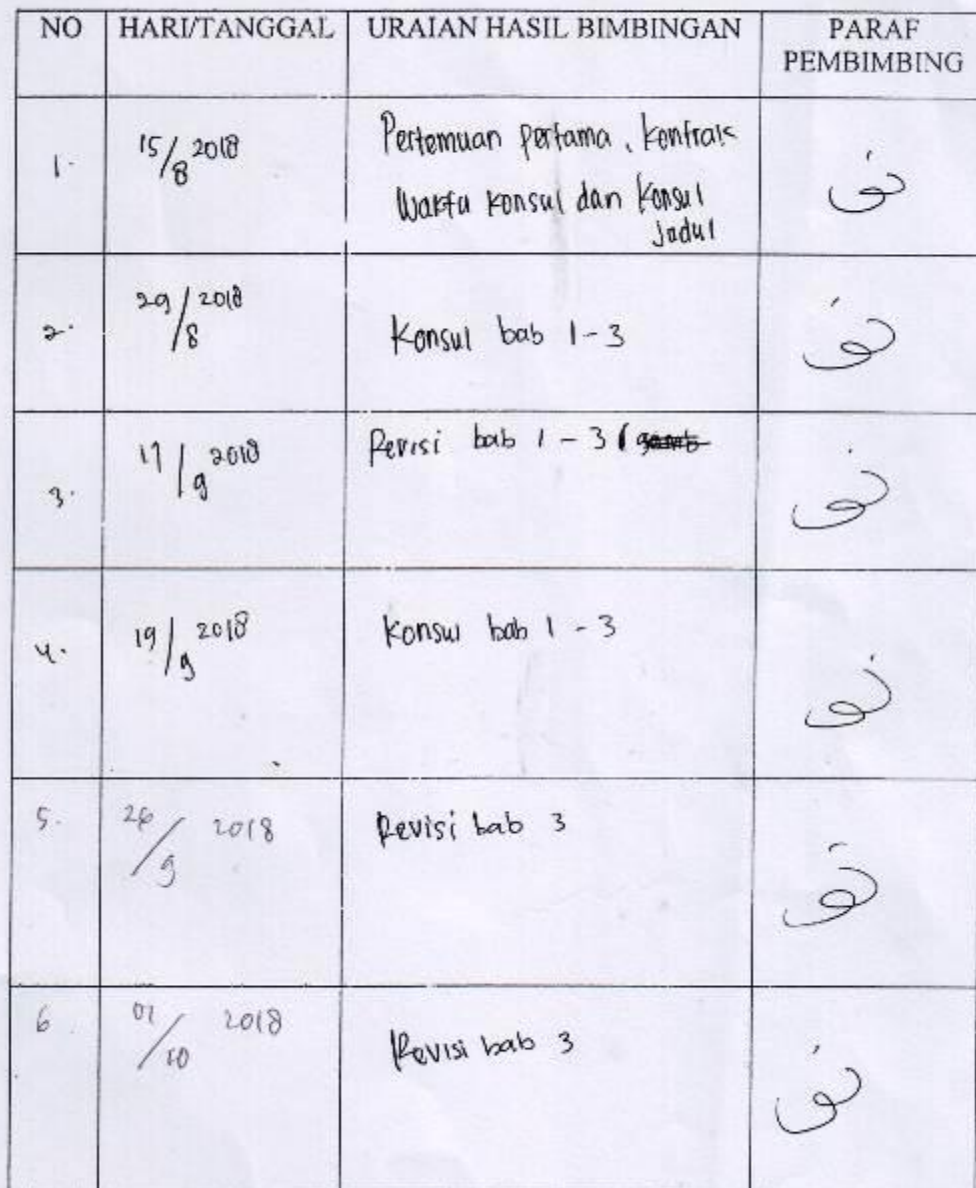 NO HARI/TANGGAL URAIAN HASIL BIMBINGAN PARAF
PEMBIMBING
1. 15/8 2018 Pertemuan pertama, kontrak
Waktu konsul dan konsul
Judul
2. 29/8 2018 Konsul bab 1-3
3. 17/9 2018 Revisi bab 1 - 3
4. 19/9 2018 Konsul bab 1 - 3
5. 26/9 2018 Revisi bab 3
6 01/10 2018 Revisi bab 3